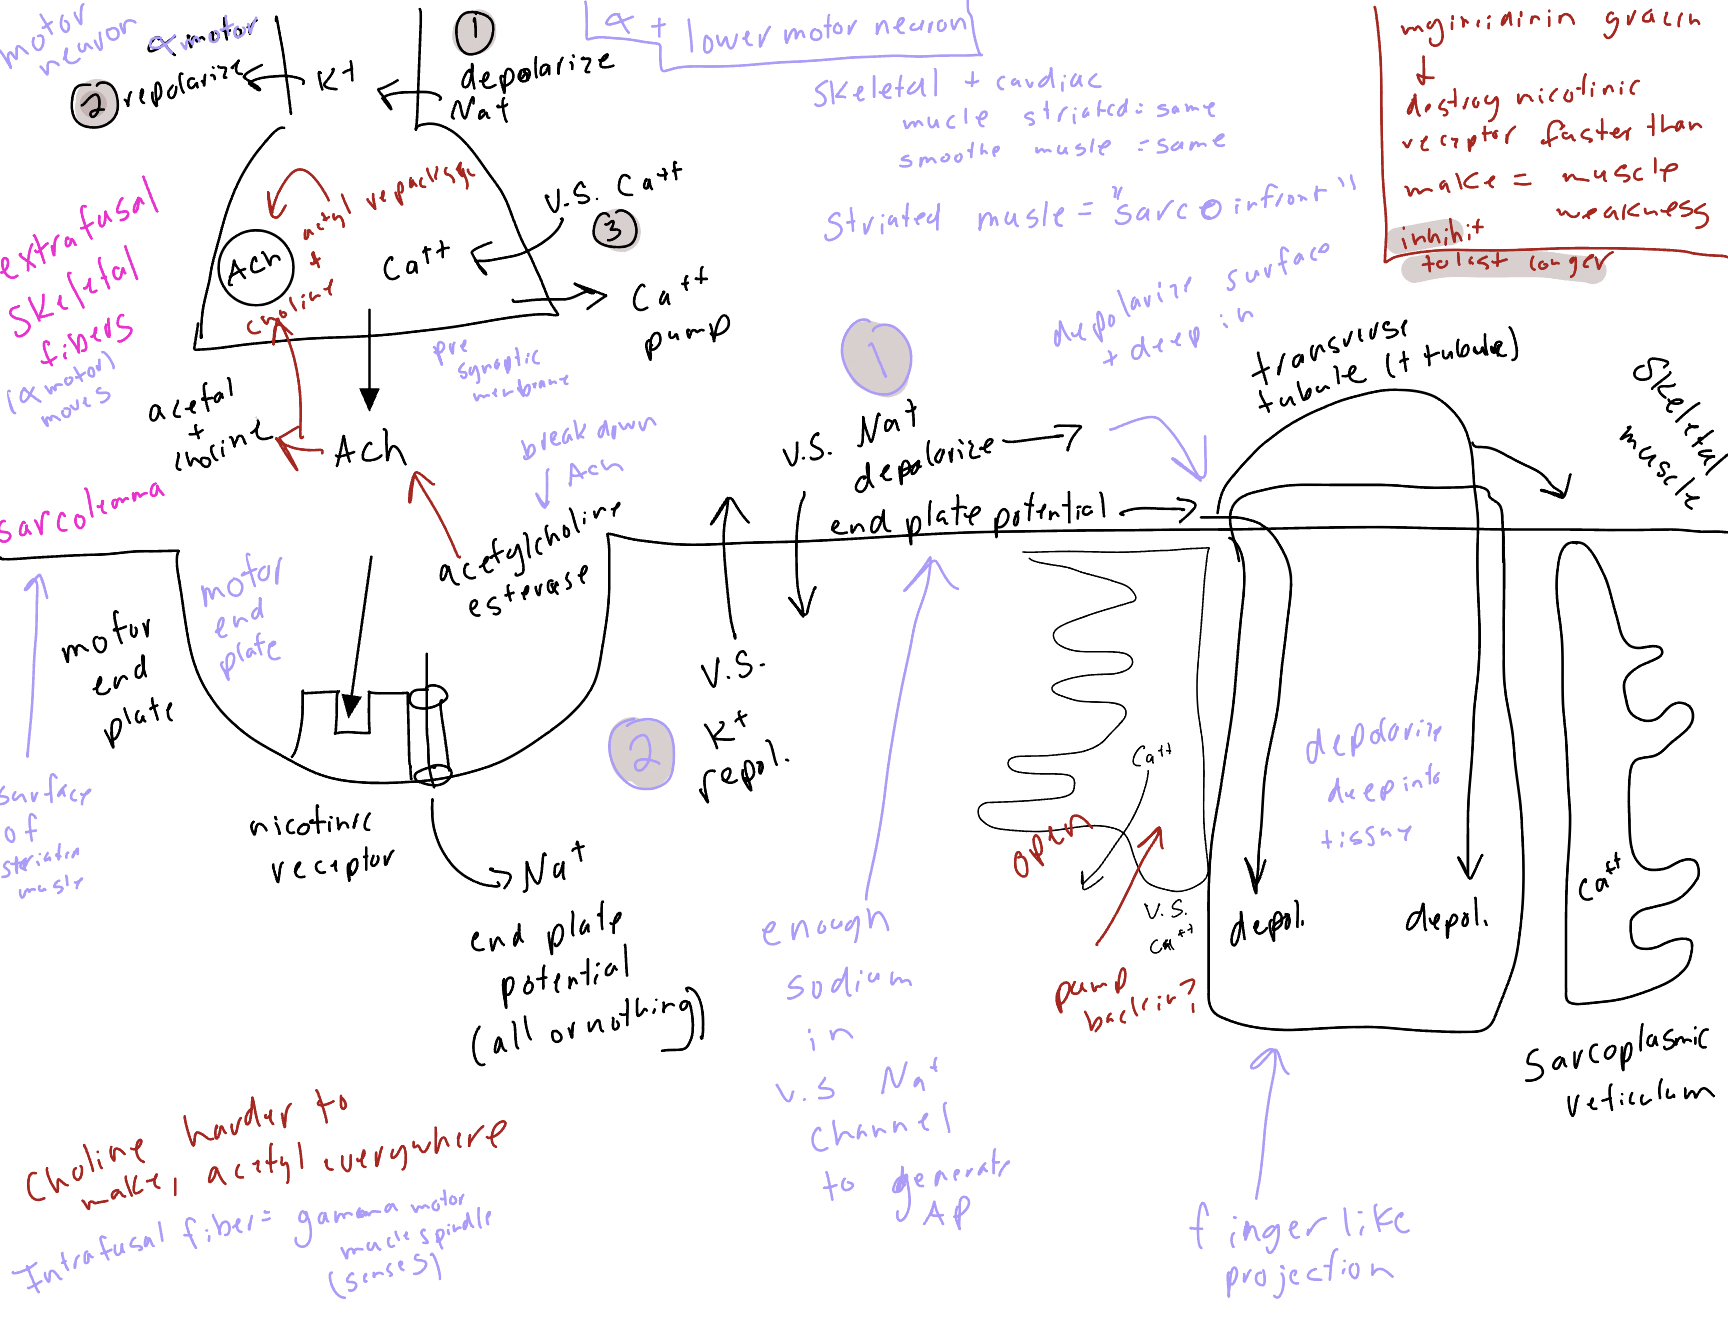 motor
neuron
α motor
② repolarize
K+
①
depolarize
Na+
α + lower motor neuron
Skeletal + cardiac
mucle striated = same
smoothe musle = same
Striated musle = "sarco infront"
gravin
destroy nicotinic
receptor faster than
make = muscle
weakness
inhibit
to last longer
extrafusal
skeletal
fibers
(α motor)
moves
ACh
acetyl
+
choline
repackage
Ca++
V.S. Ca++
③
Ca++
pump
pre
synaptic
membrane
acetal
+
choline
ACh
break down
ACh
acetylcholine
esterase
sarcolemma
surface
of
striated
musle
motor
end
plate
motor
end
plate
nicotinic
receptor
Na+
end plate
potential
(all or nothing)
①
V.S. Na+
depolarize
end plate potential
②
V.S.
K+
repol.
depolarize surface
+ deep in
transverse
tubule (t tubule)
Skeletal
muscle
enough
sodium
in
V.S Na+
channel
to generate
AP
Ca++
open
V.S.
Ca++
pump
back in?
depol.
depol.
depolarize
deep into
tissue
Ca++
Sarcoplasmic
reticulum
finger like
projection
Choline harder to
make, acetyl everywhere
Intrafusal fiber = gamma motor
mucle spindle
(senses)